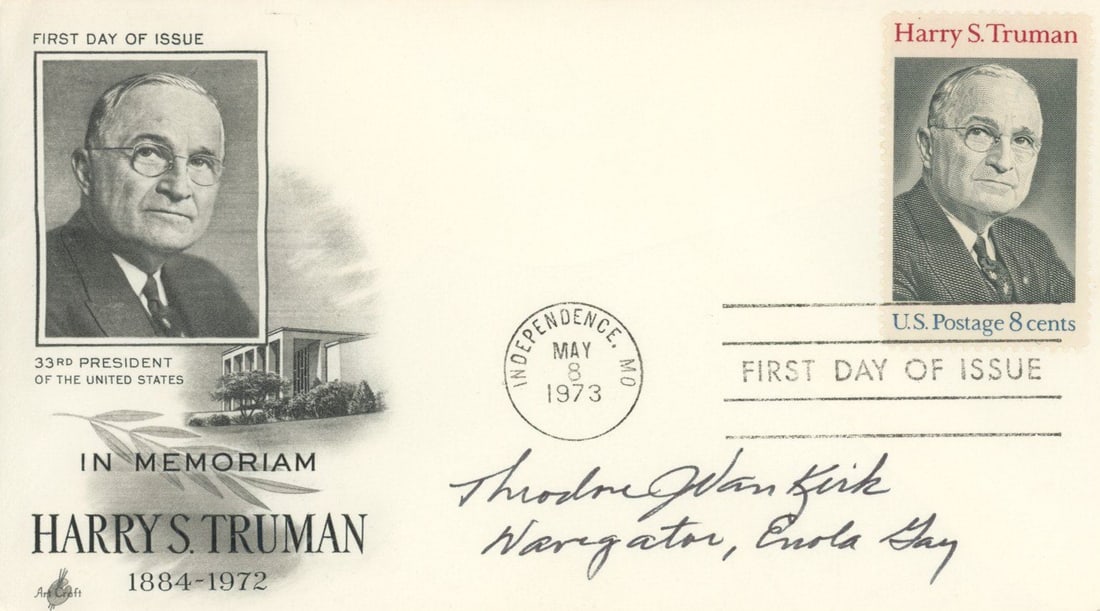 FIRST DAY OF ISSUE
33RD PRESIDENT
OF THE UNITED STATES
IN MEMORIAM
HARRY S. TRUMAN
1884-1972
Art Craft
INDEPENDENCE, MO
MAY
8
1973
Harry S. Truman
U.S. Postage 8 cents
FIRST DAY OF ISSUE
Theodore J Van Kirk
Navigator, Enola Gay